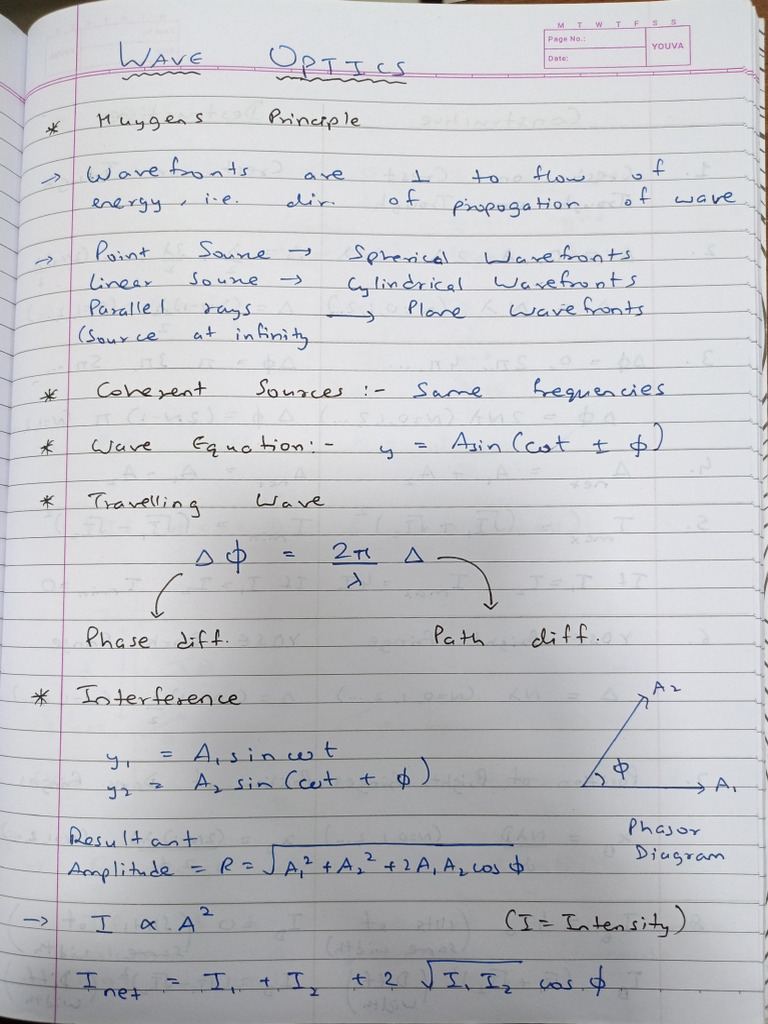 M T W T F S S
Page No.:
Date:
YOUVA
WAVE OPTICS
* Huygens Principle
→ Wavefronts are ⊥ to flow of
energy, i.e. dir. of propogation of wave
→ Point Source → Spherical Wavefronts
Linear Source → Cylindrical Wavefronts
Parallel rays → Plane Wavefronts
(Source at infinity
* Coherent Sources :- Same frequencies
* Wave Equation:- y = Asin(ωt ± φ)
* Travelling Wave
Δφ = 2π/λ Δ
Phase diff. Path diff.
* Interference
y₁ = A₁ sin ωt
y₂ = A₂ sin (ωt + φ)
A₂
φ
A₁
Phasor
Diagram
Resultant
Amplitude = R = √(A₁² + A₂² + 2A₁A₂ cos φ)
→ I ∝ A² (I = Intensity)
I net = I₁ + I₂ + 2 √(I₁ I₂) cos φ